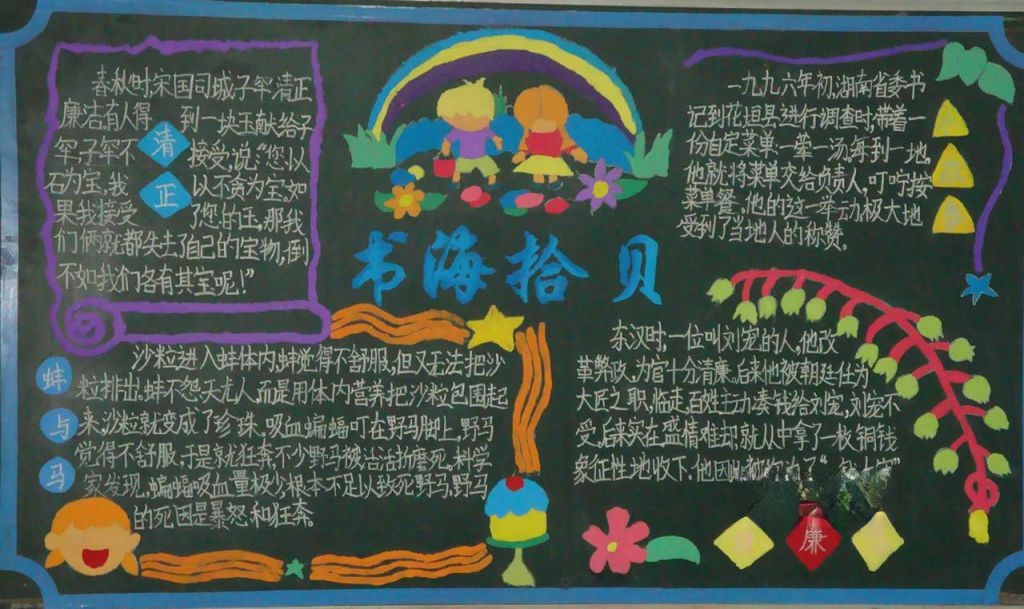 春秋时宋国司城子罕清正
廉洁,有人得到一块玉献给子
罕,子罕不接受,说:“您以
石为宝,我以不贪为宝,如
果我接受了您的玉,那我
们俩就都失去了自己的宝物,倒
不如我们各有其宝呢!”
清
正
书海拾贝
一九九六年初,湖南省委书
记到花垣县进行调查时,带着一
份自定菜单:一荤一汤,每到一地,
他就将菜单交给负责人,叮咛按
菜单餐。他的这一举动极大地
受到了当地人的称赞。
沙粒进入蚌体内,蚌觉得不舒服,但又无法把沙
粒排出,蚌不怨天尤人,而是用体内营养把沙粒包围起
来,沙粒就变成了珍珠。吸血蝙蝠叮在野马脚上,野马
觉得不舒服,于是就狂奔,不少野马被活活折磨死。科学
家发现,蝙蝠吸血量极少,根本不足以致死野马,野马
的死因是暴怒和狂奔。
蚌
与
马
东汉时,一位叫刘宠的人,他改
革弊政,为官十分清廉。后来他被朝廷任为
大匠之职,临走,百姓主动凑钱给刘宠,刘宠不
受,后来实在盛情难却,就从中拿了一枚铜钱
象征性地收下。他因此被
廉